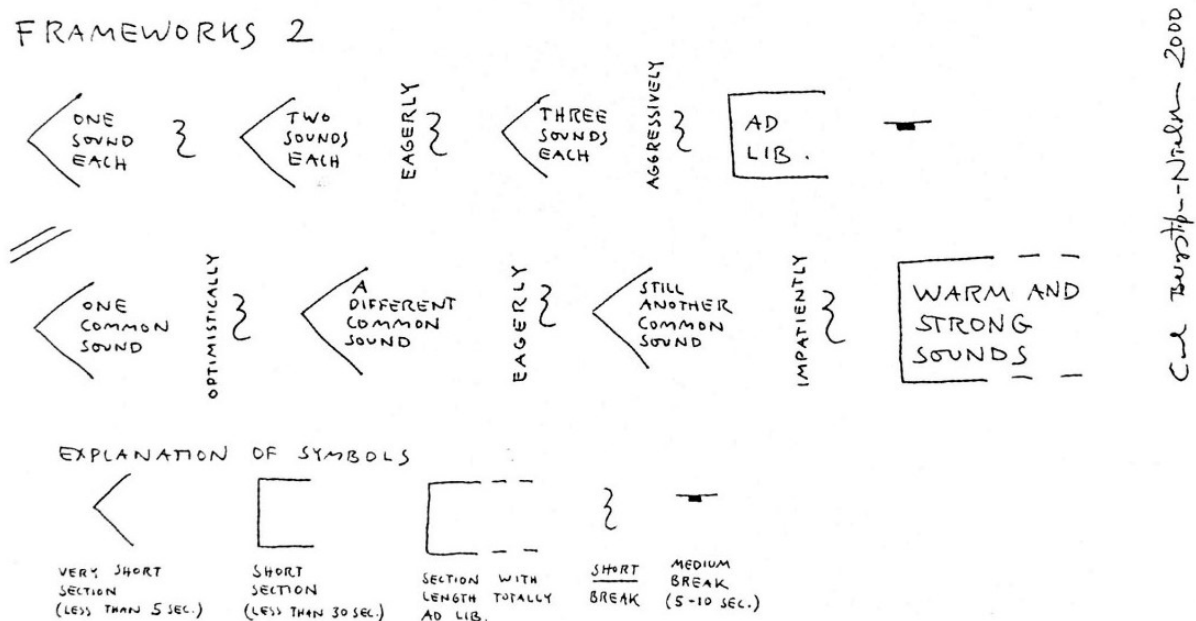 FRAMEWORKS 2
ONE
SOUND
EACH
TWO
SOUNDS
EACH
EAGERLY
THREE
SOUNDS
EACH
AGGRESSIVELY
AD
LIB.
ONE
COMMON
SOUND
OPTIMISTICALLY
A
DIFFERENT
COMMON
SOUND
EAGERLY
STILL
ANOTHER
COMMON
SOUND
IMPATIENTLY
WARM AND
STRONG
SOUNDS
EXPLANATION OF SYMBOLS
VERY SHORT
SECTION
(LESS THAN 5 SEC.)
SHORT
SECTION
(LESS THAN 30 SEC.)
SECTION WITH
LENGTH TOTALLY
AD LIB.
SHORT
BREAK
MEDIUM
BREAK
(5-10 SEC.)
Carl Bergstrøm-Nielsen 2000